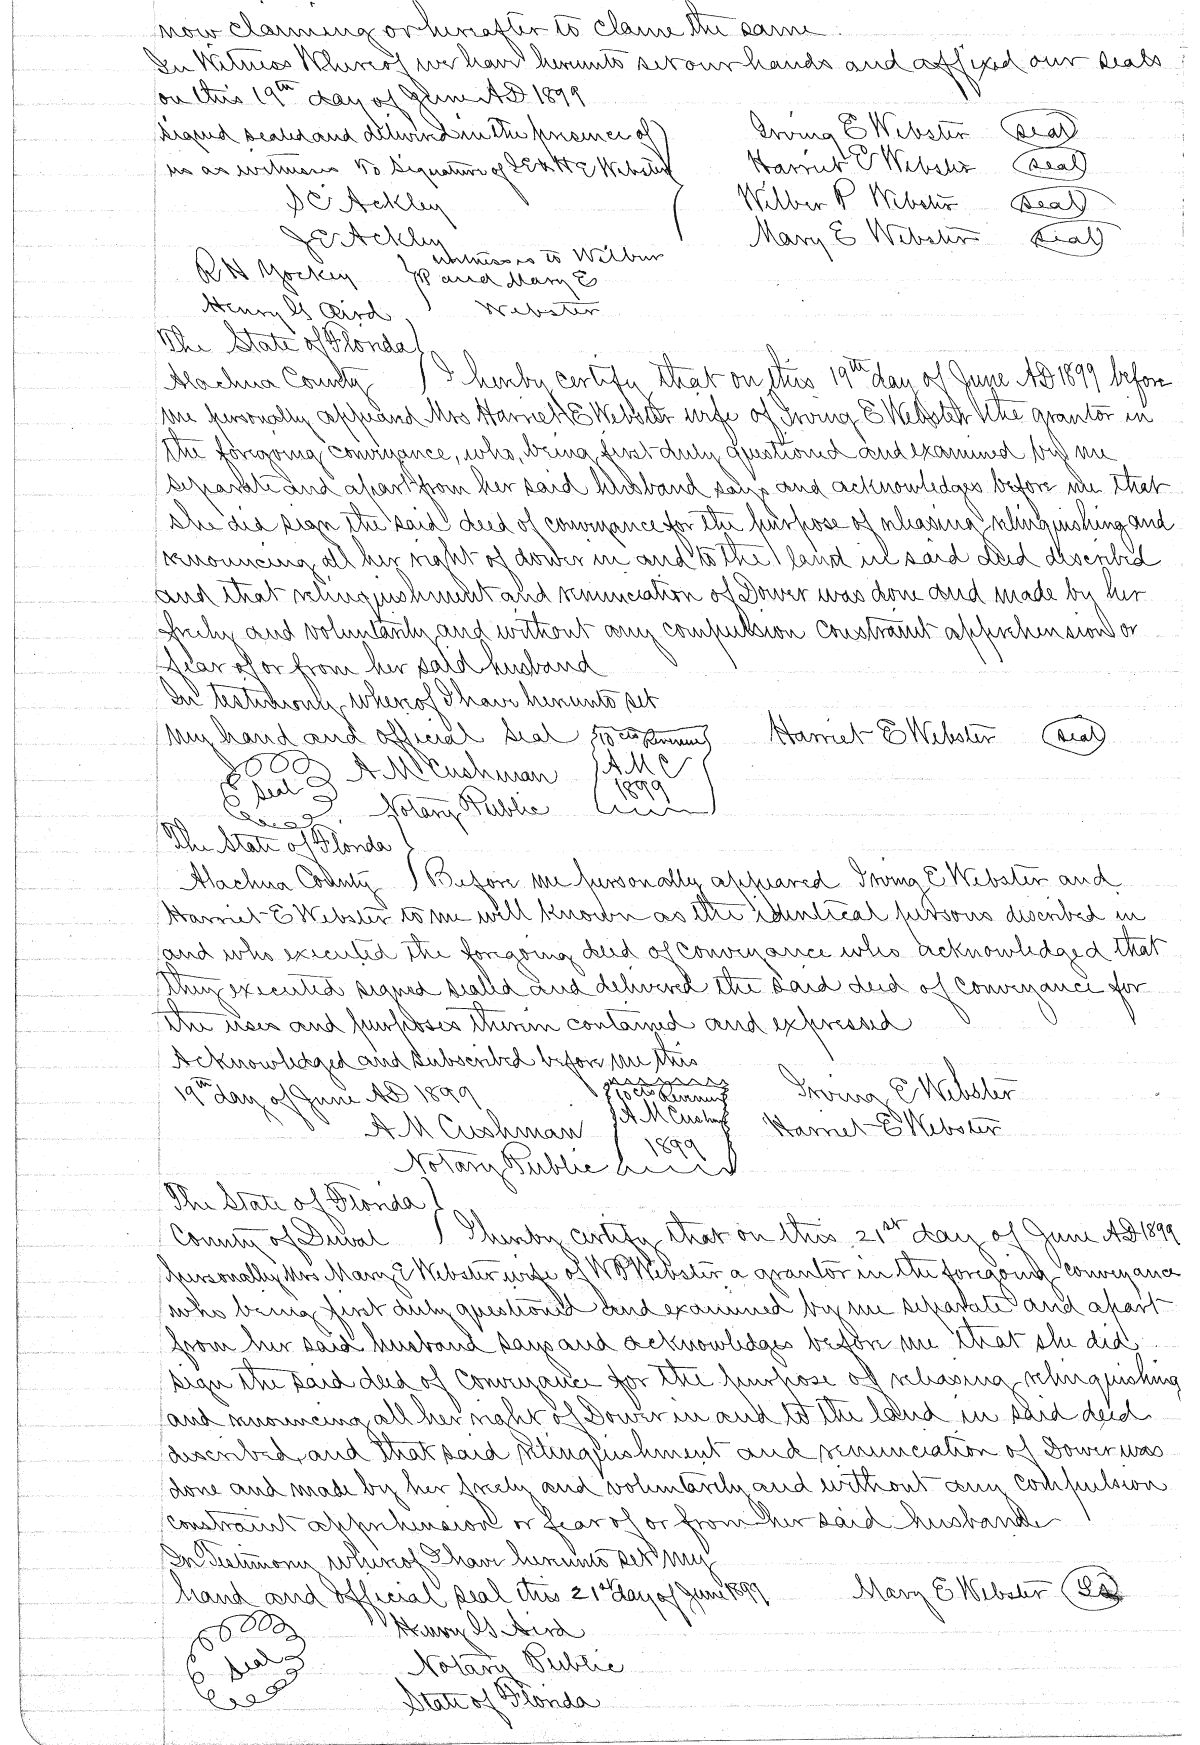 now claiming or hereafter to claim the same
In Witness Whereof we have hereunto set our hands and affixed our seals
on this 19th day of June AD 1899
Signed sealed and delivered in the presence of
us as witnesses to Signature of I E & H E Webster
Irving E Webster Seal
Harriet E Webster Seal
Wilber P Webster Seal
Mary E Webster Seal
S C Ackley
J C Ackley
R H Yockey
Henry G Aird
witnesses to Wilbur
P and Mary E
Webster
The State of Florida
Alachua County I hereby certify that on this 19th day of June AD 1899 before
me personally appeared Mrs Harriet E Webster wife of Irving E Webster the grantor in
the foregoing conveyance, who, being first duly questioned and examined by me
separate and apart from her said husband says and acknowledges before me that
she did sign the said deed of conveyance for the purpose of releasing relinquishing and
renouncing all her right of dower in and to the land in said deed described
and that relinquishment and renunciation of Dower was done and made by her
freely and voluntarily and without any compulsion constraint apprehension or
fear of or from her said husband
In testimony whereof I have hereunto set
my hand and official seal
10 cts Revenue
A M C
1899
Harriet E Webster Seal
Seal
A M Cushman
Notary Public
The State of Florida
Alachua County Before me personally appeared Irving E Webster and
Harriet E Webster to me well known as the identical persons described in
and who executed the foregoing deed of conveyance who acknowledged that
they executed signed sealed and delivered the said deed of conveyance for
the uses and purposes therein contained and expressed
Acknowledged and subscribed before me this
19th day of June AD 1899
10 cts Revenue
A M Cush
1899
Irving E Webster
Harriet E Webster
A M Cushman
Notary Public
The State of Florida
County of Duval I hereby certify that on this 21st day of June AD 1899
personally Mrs Mary E Webster wife of W P Webster a grantor in the foregoing conveyance
who being first duly questioned and examined by me separate and apart
from her said husband says and acknowledges before me that she did
sign the said deed of conveyance for the purpose of releasing relinquishing
and renouncing all her right of Dower in and to the land in said deed
described, and that said relinquishment and renunciation of Dower was
done and made by her freely and voluntarily and without any compulsion
constraint apprehension or fear of or from her said husband
In Testimony whereof I have hereunto set my
hand and official seal this 21st day of June 1899
Mary E Webster
Seal
Henry G Aird
Notary Public
State of Florida